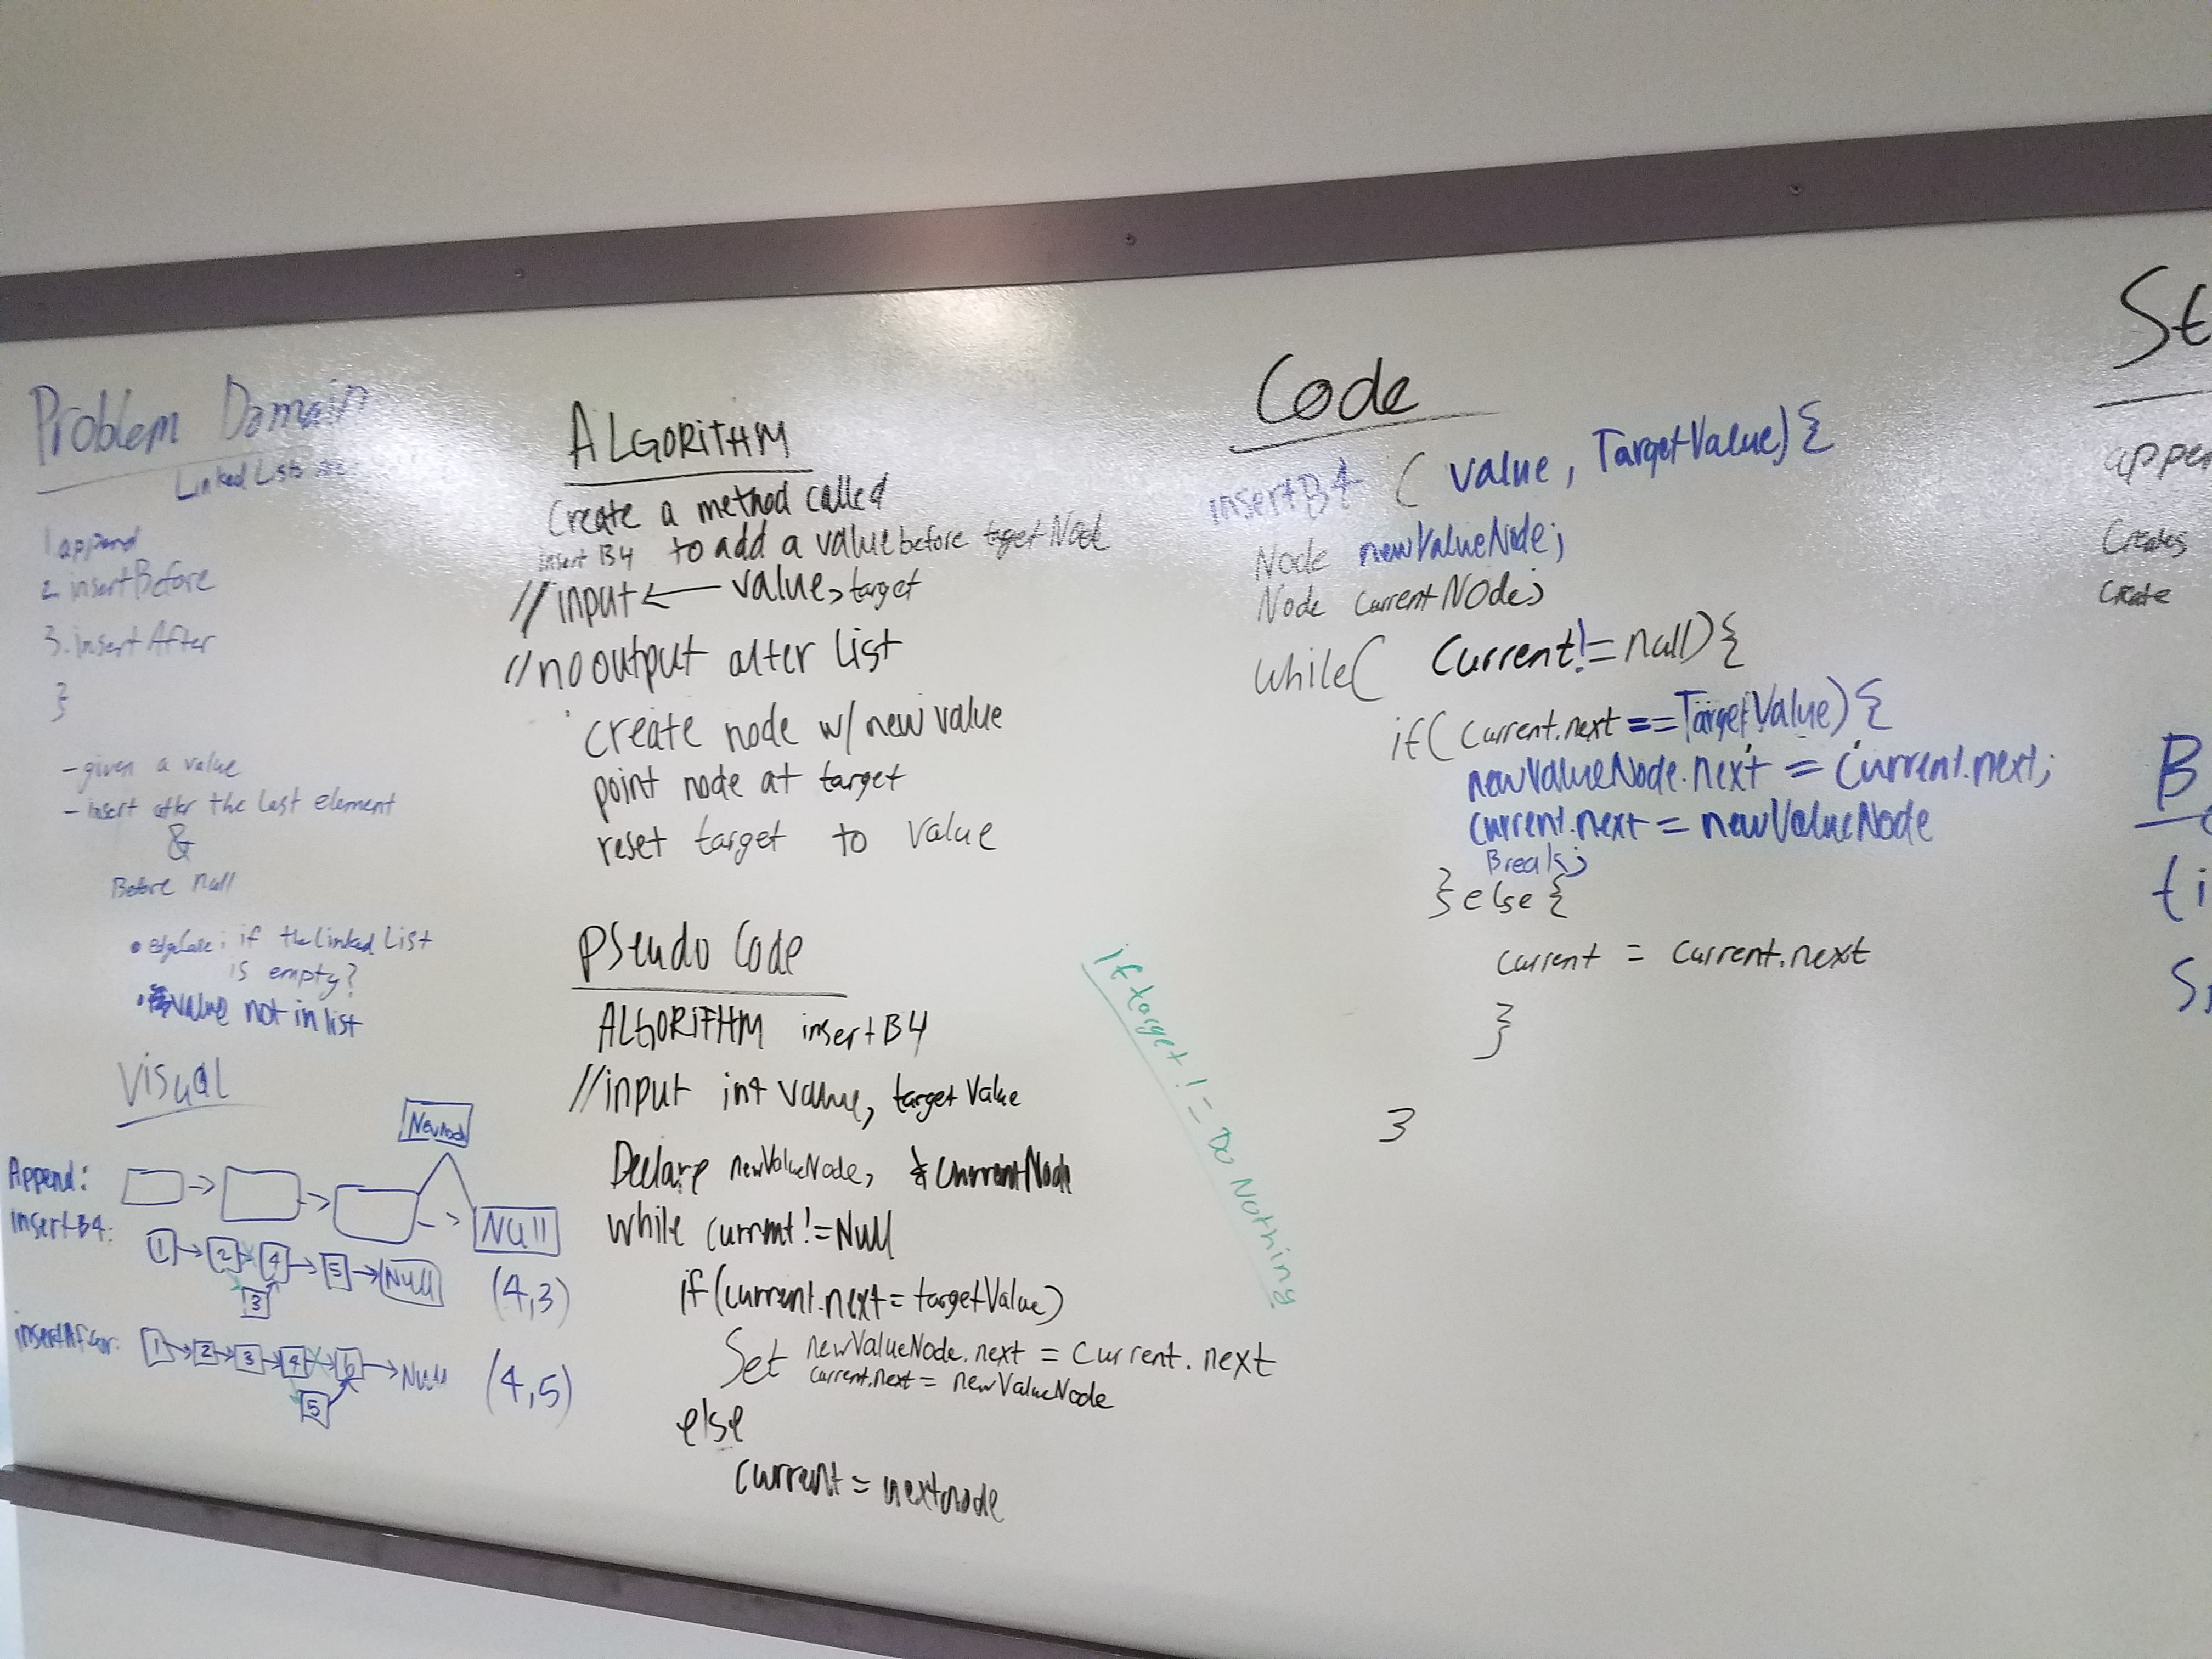 Problem Domain
Linked Lists
1 append
2. insertBefore
3. insertAfter
}
- given a value
- insert after the last element
&
Before null
• edgeCase: if the Linked List
is empty?
• value not in list
Visual
New node
Append:
Null
insertB4:
1 2 4 5 Null
3
(4,3)
insertAfter:
1 2 3 4 6 Null
5
(4,5)
ALGORITHM
Create a method called
insert B4 to add a value before target Node
//input ← value, target
//no output alter List
create node w/ new value
point node at target
reset target to value
Pseudo Code
ALGORITHM insertB4
//input int value, target Value
Declare newValueNode, currentNode
while current != Null
if (current.next = targetValue)
Set newValueNode.next = current.next
current.next = newValueNode
else
current = nextnode
if target != Do Nothing
Code
insertB4 ( value, TargetValue) {
Node newValueNode;
Node currentNode;
while( Current != null) {
if( current.next == TargetValue) {
newValueNode.next = current.next;
current.next = newValueNode
Break;
} else {
current = current.next
}
}
St
appen
Creates
create
B
ti